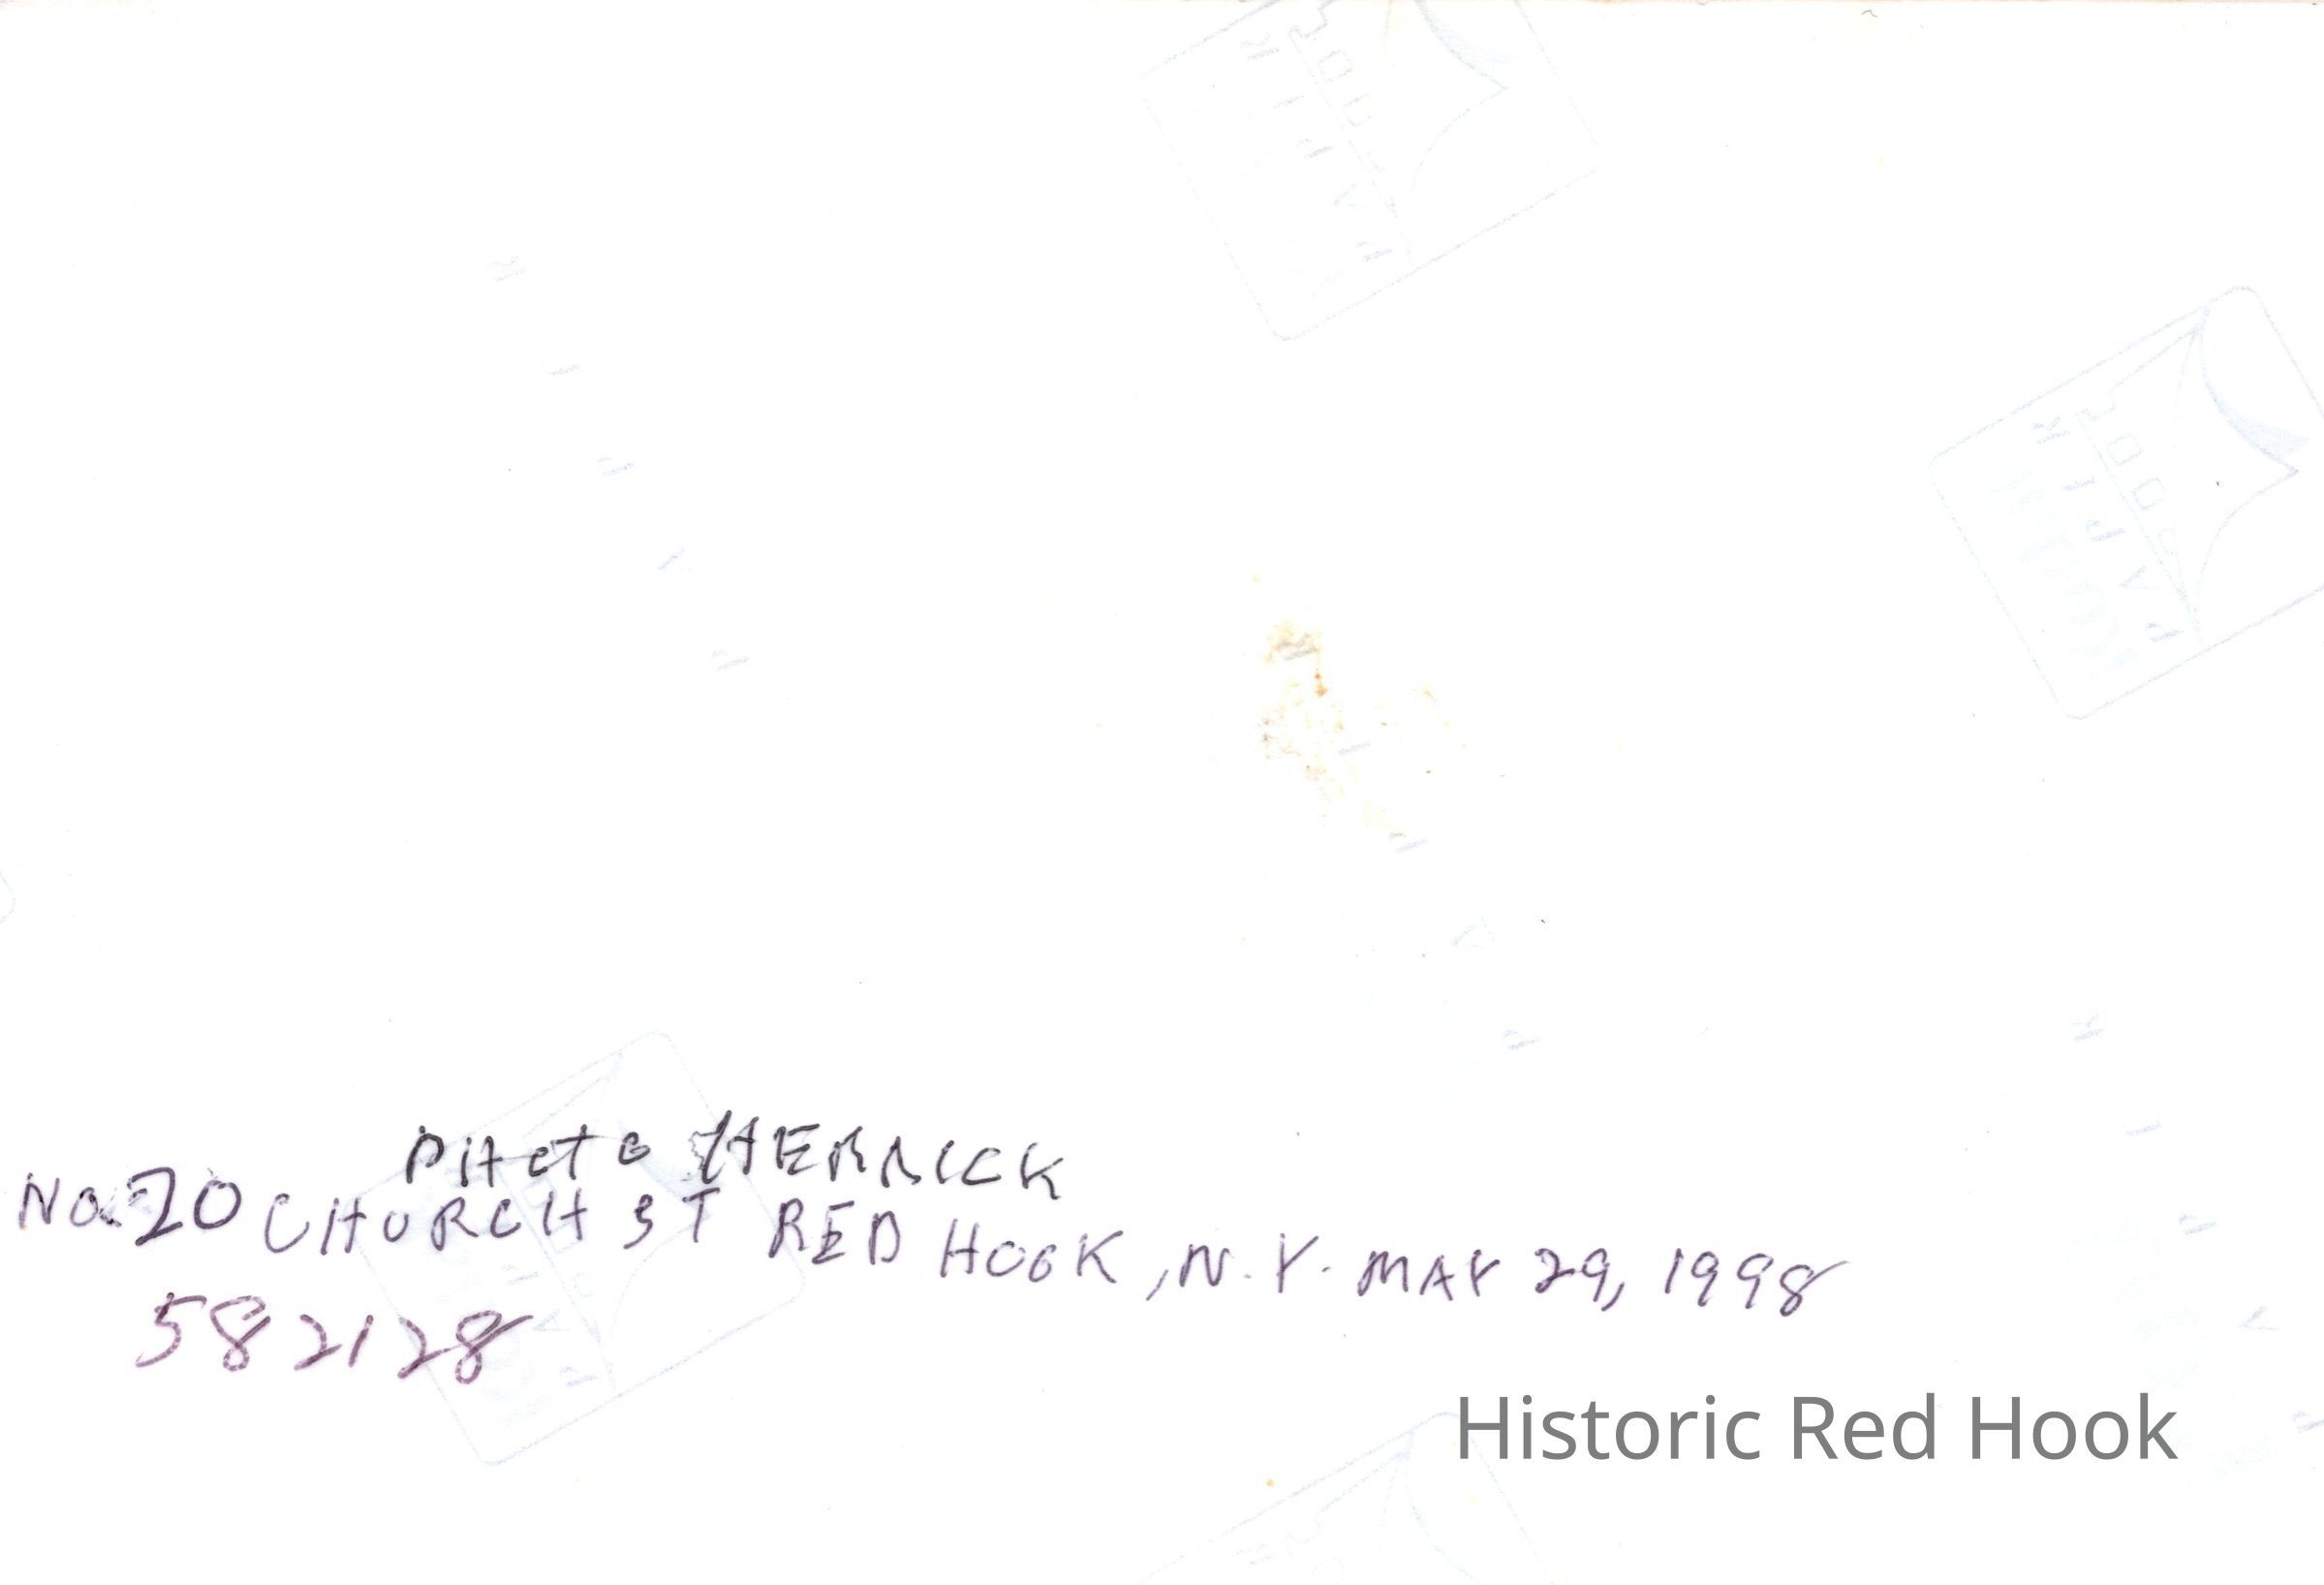 PHOTO HERRICK
No. 20 CHURCH ST RED HOOK, N.Y. MAY 29, 1998
582128
Historic Red Hook